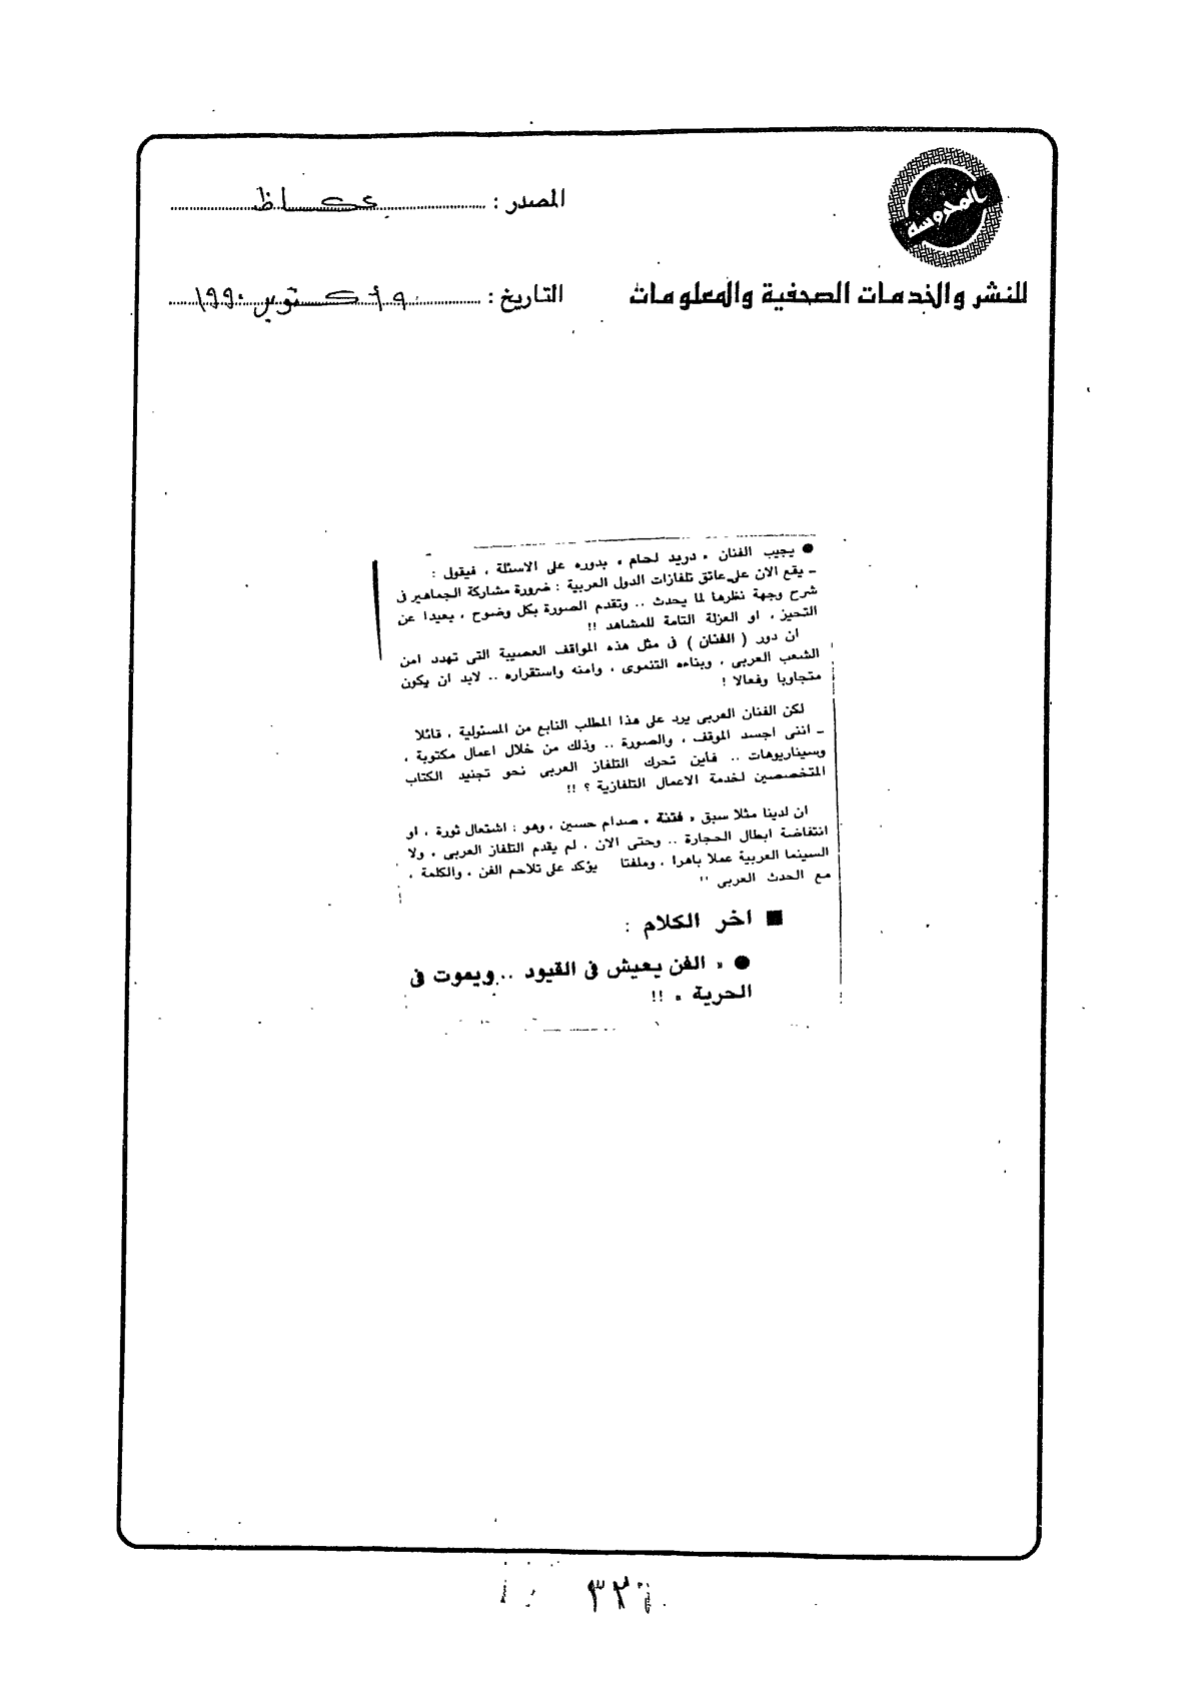 المحروسة
للنشر والخدمات الصحفية والمعلومات
المصدر : عكاظ
التاريخ : ٩ أكتوبر ١٩٩٠
● يجيب الفنان « دريد لحام » بدوره على الاسئلة ، فيقول :
ـ يقع الان على عاتق تلفازات الدول العربية : ضرورة مشاركة الجماهير فى
شرح وجهة نظرها لما يحدث .. وتقدم الصورة بكل وضوح ، بعيدا عن
التحيز ، او العزلة التامة للمشاهد !!
ان دور ( الفنان ) فى مثل هذه المواقف العصيبة التى تهدد امن
الشعب العربى ، وبناءه التنموى ، وامنه واستقراره .. لابد ان يكون
متجاوبا وفعالا !
لكن الفنان العربى يرد على هذا المطلب النابع من المسئولية ، قائلا
ـ اننى اجسد الموقف ، والصورة .. وذلك من خلال اعمال مكتوبة ،
وسيناريوهات .. فاين تحرك التلفاز العربى نحو تجنيد الكتاب
المتخصصين لخدمة الاعمال التلفازية ؟ !!
ان لدينا مثلا سبق « فتنة » صدام حسين ، وهو : اشتعال ثورة ، او
انتفاضة ابطال الحجارة .. وحتى الان ، لم يقدم التلفاز العربى ، ولا
السينما العربية عملا باهرا ، وملفتا يؤكد على تلاحم الفن ، والكلمة ،
مع الحدث العربى !!
■ اخر الكلام :
● « الفن يعيش فى القيود .. ويموت فى
الحرية » !!